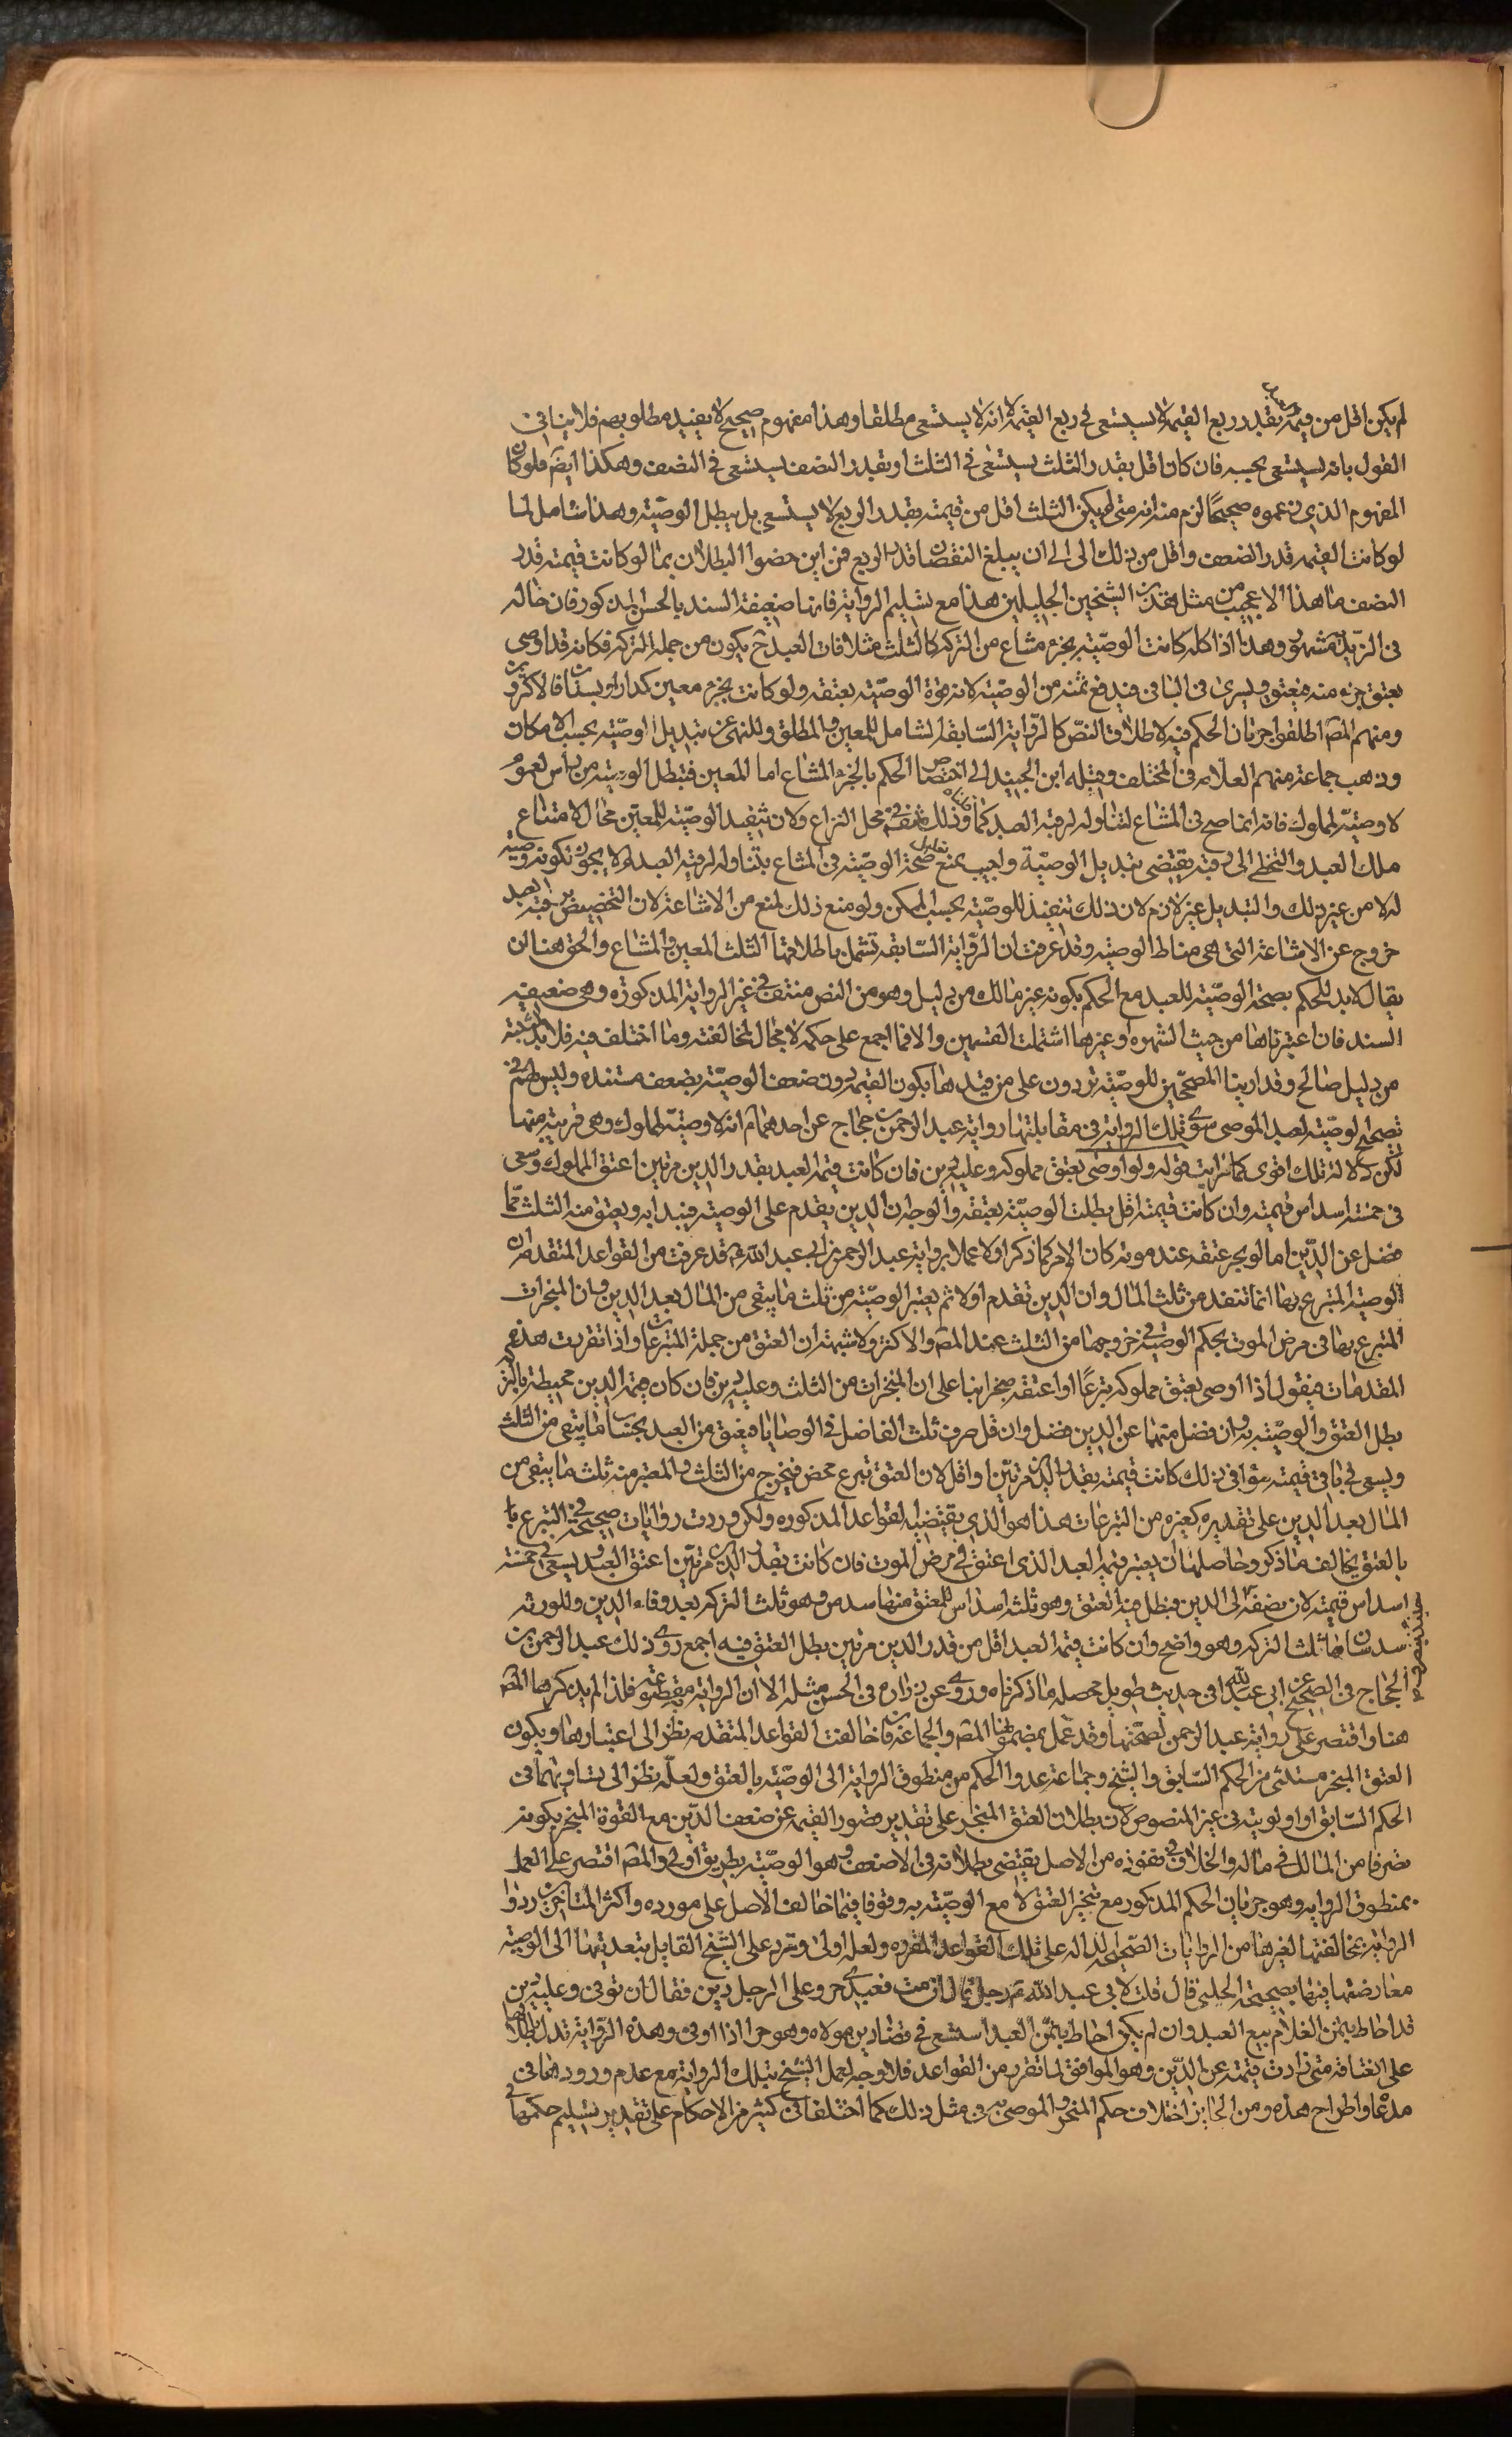 لم يكن اقل من قيمته بقدر ربع القيمة لا يستسعى في ربع القيمة لا انه لا يستسعى مطلقا وهذا مفهوم صحيح لا يفيد مطلوبهم فلا ينافي
القول بانه يستسعى بحسبه فان كان اقل بقدر الثلث يستسعى في الثلث او بقدر النصف يستسعى في النصف وهكذا ايضم فلو كان
المفهوم الذي زعموه صحيحًا لزم منه انه متى لم يكن الثلث اقل من قيمته بقدر الربع لا يستسعى بل يبطل الوصيّة وهذا شامل لما
لو كانت القيمه قدر الضعف واقل من ذلك الى الى ان يبلغ النقصان قدر الربع فمن اين خصوا البطلان بما لو كانت قيمته قدر
النصف ما هذا الا عجيب من مثل هذين الشيخين الجليلين هذا مع تسليم الرواية فانها ضعيفة السند بالحسن المذكور فان حاله
في الزيدية مشهور وهذا اذا كله كانت الوصيّة بجزء مشاع من التركه كالثلث مثلا فان العبد ح يكون من جمله التركة فكانه قد اوصى
بعتق جزء منه فيعتق ويسرى في الباقي فيدفع ثمنه من الوصيّة لانه في قوة الوصيّة بعتقه ولو كانت بجزء معين كدار او بستان فالاكثرون
ومنهم المصم اطلقوا جريان الحكم فيه لاطلاق النصّ كالرّواية السّابقة الشامل للمعين والمطلق وللنهى عن تبديل الوصيّة بحسب الامكان
وذهب جماعة منهم العلامه في المختلف وقبله ابن الجنيد الى اختصاص الحكم بالجزء المشاع اما المعين فتبطل الوصية من راس لعموم
لا وصيّة لمملوك فانه انما صح في المشاع لتناوله لرقبة العبد كما مر وذلك منتف في محل النزاع ولان تنفيذ الوصيّة للمعين محال لامتناع
ملك العبد والتخطى الى رقبته يقتضى تبديل الوصيّة واجيب بمنع صحة الوصيّة في المشاع بتناوله لرقبة العبد اذ لا يجوز تكونه وصيّة
له لا من غير ذلك والتبديل غير لازم لان ذلك تنفيذ للوصيّة بحسب الممكن ولو منع ذلك لمنع من الاشاعة لان التخصيص برقبة العبد
خروج عن الاشاعة التي هي مناط الوصيه وقد عرفت ان الرّواية السّابقه تشمل باطلاقها الثلث المعين والمشاع والحق هنا ان
يقال لا بد للحكم بصحة الوصيّة للعبد مع الحكم بكونه غير مالك من دليل وهو من النص منتف في غير الرواية المذكوره وهي ضعيفه
السند فان اعتبرناها من حيث الشهره او غيرها اشتملت القسمين والا فما اجمع على حكمه لا مجال لمخالفته وما اختلف فيه فلا بد لمثبته
من دليل صالح وقد اريتا المصحّحين للوصيّة يردون على من قيدها بكون القيمة دون ضعف الوصيّة بضعف مستنده وليس لهم في
تصحيح الوصيّة لعبد الموصى سوى تلك الرواية في مقابلتها رواية عبد الرحمن بن حجاج عن احدهما م انه لا وصيّة لمملوك وهي قريبة منها
لكن دلالة تلك اقوى كما رايت قوله ولو اوصى بعتق مملوكه وعليه دين فان كانت قيمة العبد بقدر الدين مرتين اعتق المملوك وسعى
في خمسة اسداس قيمته وان كانت قيمته اقل بطلت الوصيّة بعتقه والوجه ان الدين يقدم على الوصية فيبدا به ويعتق منه الثلث ممّا
فضل عن الدّين اما لو نجز عتقه عند موته كان الامر كما ذكر اولا عملا برواية عبد الرحمن عن ابي عبد الله ع قد عرفت من القواعد المتقدمه ان
الوصية المتبرع بها انما تنفذ من ثلث المال وان الدين تقدم اولا ثم يعتبر الوصيّة من ثلث ما يبقى من المال بعد الدين وان المنجزات
المتبرع بها في مرض الموت بحكم الوصيّة في خروجها من الثلث عند المصم والاكثر ولا شبهة ان العتق من جملة التبرعات واذا تقررت هذه
المقدمات فيقول اذا اوصى بعتق مملوكه تبرعًا او اعتقه منجزا بنا على ان المنجزات من الثلث وعليه دين فان كان قيمة الدين محيطة بالتركه
بطل العتق والوصيّة به وان فضل منهما عن الدين فضل وان قل صرف ثلث الفاضل في الوصايا فيعتق من العبد بحساب ما يبقى من الثلث
ويسعى في باقي قيمته سواء في ذلك كانت قيمته بقدر الدين مرتين او اقل لان العتق تبرع محض فيخرج من الثلث والمعتبر منه ثلث ما يبقى من
المال بعد الدين على تقديره كغيره من التبرعات هذا هو الذي يقتضيه القواعد المذكوره ولكن وردت روايات صحيحه في التبرع با
بالعتق يخالف ما ذكر وحاصلها ان يعتبر قيمة العبد الذي اعتق في مرض الموت فان كانت بقدر الدين مرتين اعتق العبد ويسعى في خمسة
اسداس قيمته لان نصفه الى الدين فبطل فيه العتق وهو ثلثه اسداس للمعتق منها سدس وهو ثلث التركه بعد وفاء الدين وللورثه
سدسان هما ثلثا التركه وهو واضح وان كانت قيمة العبد اقل من قدر الدين مرتين بطل العتق فيه اجمع روى ذلك عبد الرحمن بن
الحجاج في الصحيح عن ابي عبد الله في حديث طويل محصله ما ذكرناه وروى عن زراره في الحسن مثله الا ان الرواية مقطوعة فلذا لم يذكرها المصم
هنا واقتصر على رواية عبد الرحمن لصحّتها وقد عمل بمضمونها المصم والجماعة فانها خالفت القواعد المتقدمه نظرا الى اعتبارها ويكون
العتق المنجز مستثنى من الحكم السّابق والشيخ وجماعة عدوا الحكم من منطوق الرواية الى الوصيّة بالعتق ولعلّه نظرا الى تساويهما في
الحكم السّابق او اولويته في غير المنصوص لان بطلان العتق المنجز على تقدير قصور القيمه عن ضعف الدّين مع القوة المنجز بكونه
تصرفا من المالك في ماله والخلاف في نفوذه من الاصل يقتضى بطلانه في الاضعف وهو الوصيّة بطريق اولى والمصم اقتصر على العمل
بمنطوق الروايه وهو جريان الحكم المذكور مع تنجيز العتق لا مع الوصيّة به وقوفا فيما خالف الاصل على مورده واكثر المتاخرين ردوا
الرواية بمخالفتها لغيرها من الروايات الصحيحة الدالة على تلك القواعد المقرره ولعله اولى ويرد على الشيخ القايل بتعديتها الى الوصية
معارضتها فيها بصحيحة الحلبي قال قلت لابي عبد الله م رجل قال ان مت فعبدي حر وعلى الرجل دين فقال ان توفى وعليه دين
قد احاط بثمن الغلام بيع العبد وان لم يكن احاط بثمن العبد استسعى في قضا دين مولاه وهو حر اذا اوفى وهذه الرّواية تدل باطلاقها
على انعتاقه متى زادت قيمته عن الدّين وهو الموافق لما تقرر من القواعد فلا وجه لعمل الشيخ بتلك الرواية مع عدم ورودها في
مدعا واطراح هذه ومن الجايز اختلاف حكم المنجز والموصى به في مثل ذلك كما اختلفا في كثير من الاحكام على تقدير تسليم حكمها في